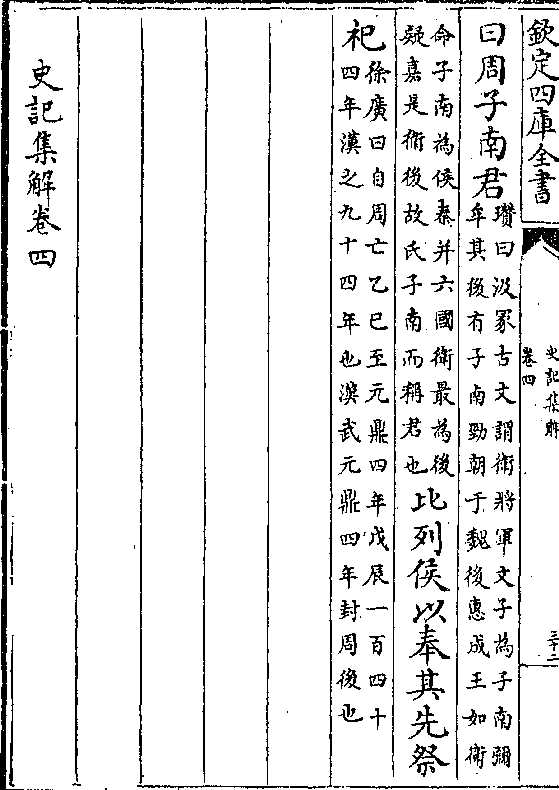 欽定四庫全書
史記集解
卷四
三十二
曰周子南君
瓚曰汲冢古文謂衛將軍文子為子南彌
牟其後有子南勁朝于魏後惠成王如衛
命子南為侯秦并六國衛最為後
疑嘉是衛後故氏子南而稱君也
比列侯以奉其先祭
祀
徐廣曰自周亡乙巳至元鼎四年戊辰一百四十
四年漢之九十四年也漢武元鼎四年封周後也
史記集解卷四